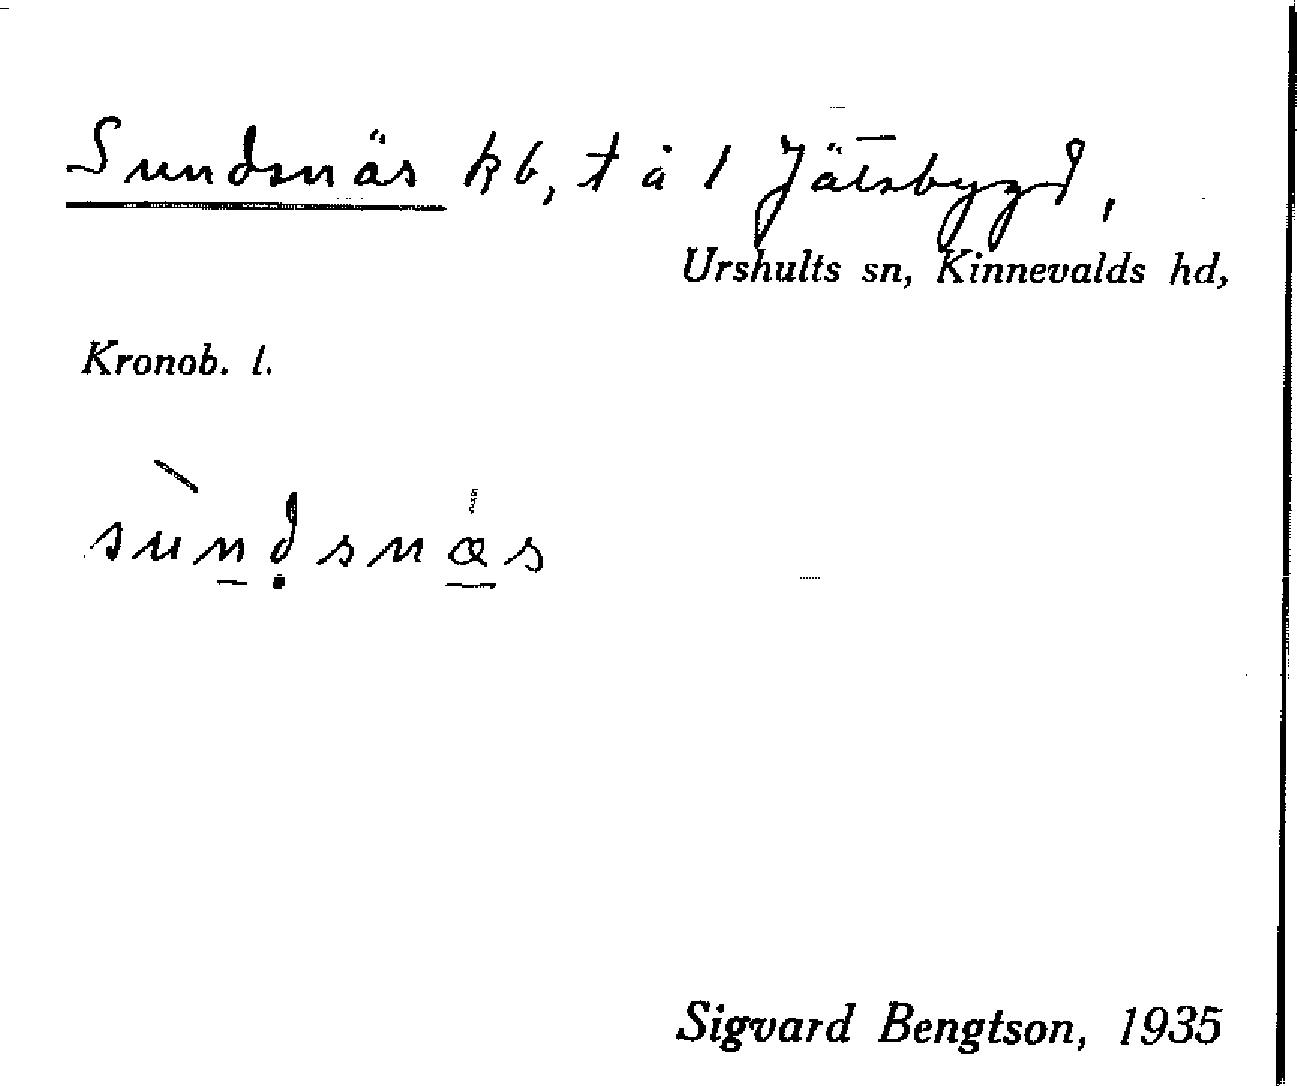 Sundsnäs kb, t å 1 Jätsbygd,
Urshults sn, Kinnevalds hd,
Kronob. l.
sùndsnæs
Sigvard Bengtson, 1935